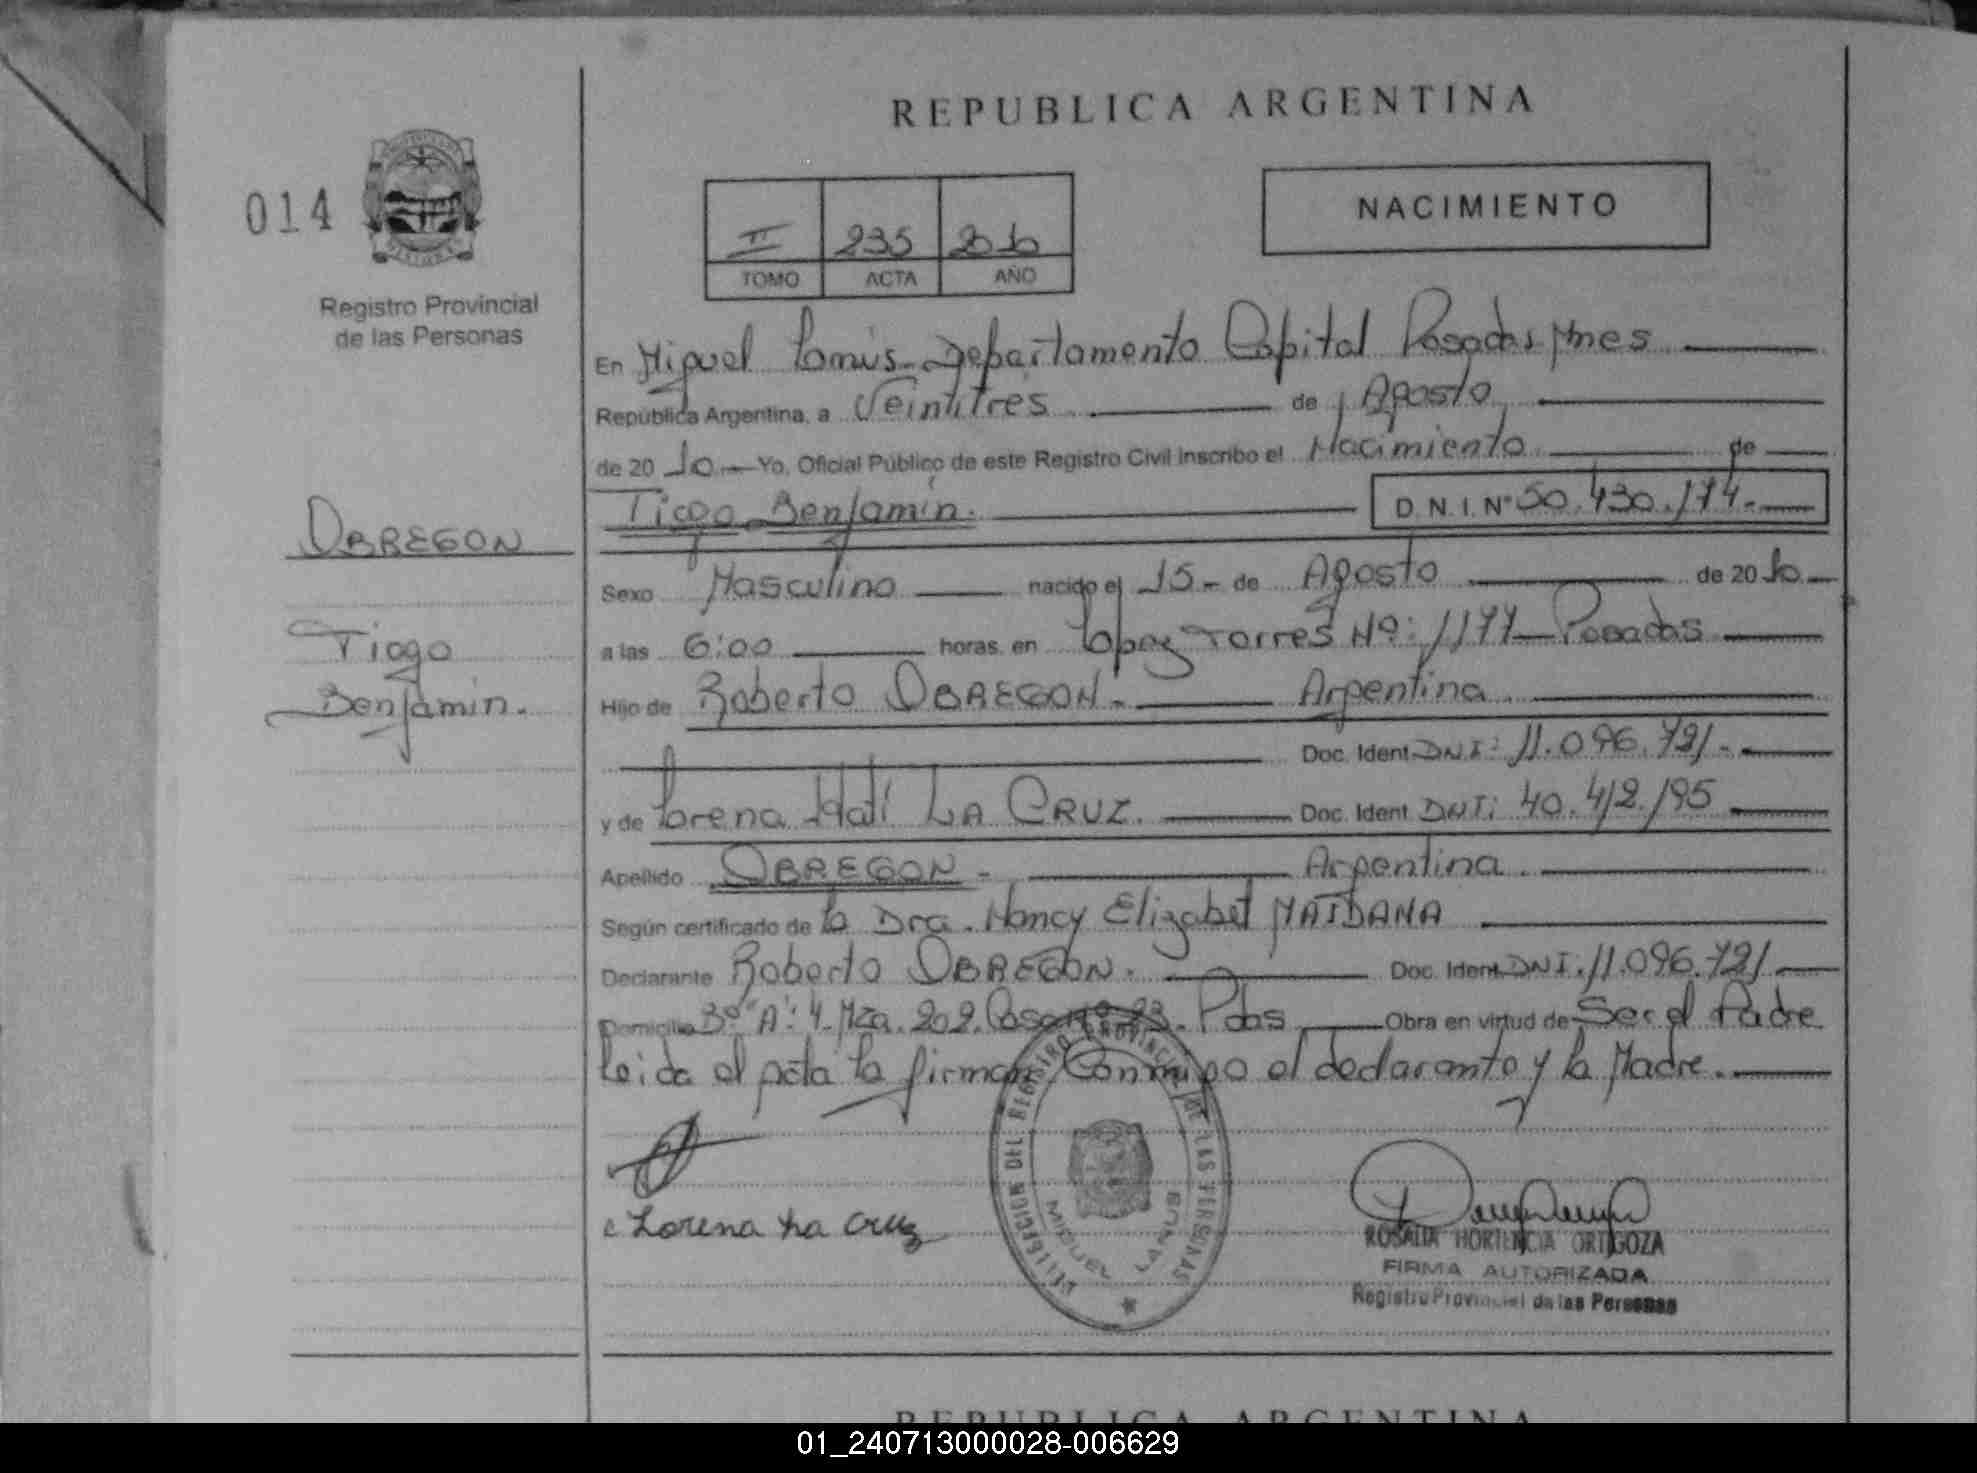 REPUBLICA ARGENTINA
014
II 235 2010
TOMO ACTA AÑO
NACIMIENTO
Registro Provincial
de las Personas
En Miguel Lanús - Departamento Capital Posadas Mnes
República Argentina, a Veintitres de Agosto
de 2010 - Yo, Oficial Público de este Registro Civil inscribo el Nacimiento de
Tiago Benjamín. D.N.I. Nº 50.430.174.-
OBREGON
Tiago
Benjamín.
Sexo Masculino nacido el 15 - de Agosto de 2010
a las 6:00 horas. en Lopez Torres Nº: 1177 - Posadas
Hijo de Roberto OBREGON.- Argentina
Doc. Ident. DNI: 11.096.721.-
y de Lorena Itatí LA CRUZ. Doc. Ident. DNI: 40.412.195
Apellido OBREGON - Argentina.
Según certificado de la Dra. Nancy Elizabet MAIDANA
Declarante Roberto OBREGON. Doc. Ident. DNI. 11.096.721
Domicilio Bº "A" 4. Mza. 202. Casa Nº 23. Pdas Obra en virtud de Ser el Padre
Leida el acta la firman Conmigo el declarante y la Madre.
DELEGACION DEL REGISTRO PROVINCIAL DE LAS PERSONAS
MIGUEL LANUS
Lorena La Cruz
ROSALIA HORTENCIA ORTIGOZA
FIRMA AUTORIZADA
Registro Provincial de las Personas
REPUBLICA ARGENTINA
01_240713000028-006629